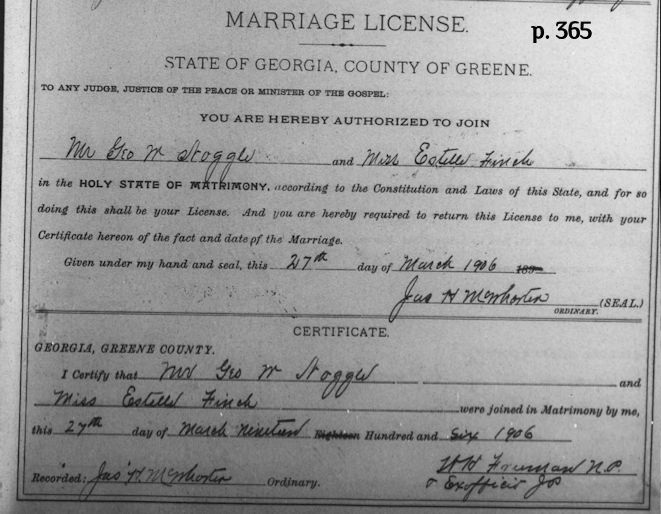 MARRIAGE LICENSE.
p. 365
STATE OF GEORGIA, COUNTY OF GREENE.
TO ANY JUDGE, JUSTICE OF THE PEACE OR MINISTER OF THE GOSPEL:
YOU ARE HEREBY AUTHORIZED TO JOIN
Mr Geo W Noggle and Miss Estelle Finch
in the HOLY STATE OF MATRIMONY, according to the Constitution and Laws of this State, and for so
doing this shall be your License. And you are hereby required to return this License to me, with your
Certificate hereon of the fact and date of the Marriage.
Given under my hand and seal, this 27th day of March 1906 189
Jas H McWhorter (SEAL.)
ORDINARY.
CERTIFICATE.
GEORGIA, GREENE COUNTY.
I Certify that Mr Geo W Noggle and
Miss Estelle Finch were joined in Matrimony by me,
this 27th day of March nineteen Eighteen Hundred and six 1906
Recorded: Jas H. McWhorter Ordinary. Freeman N.P.
Exofficio JP